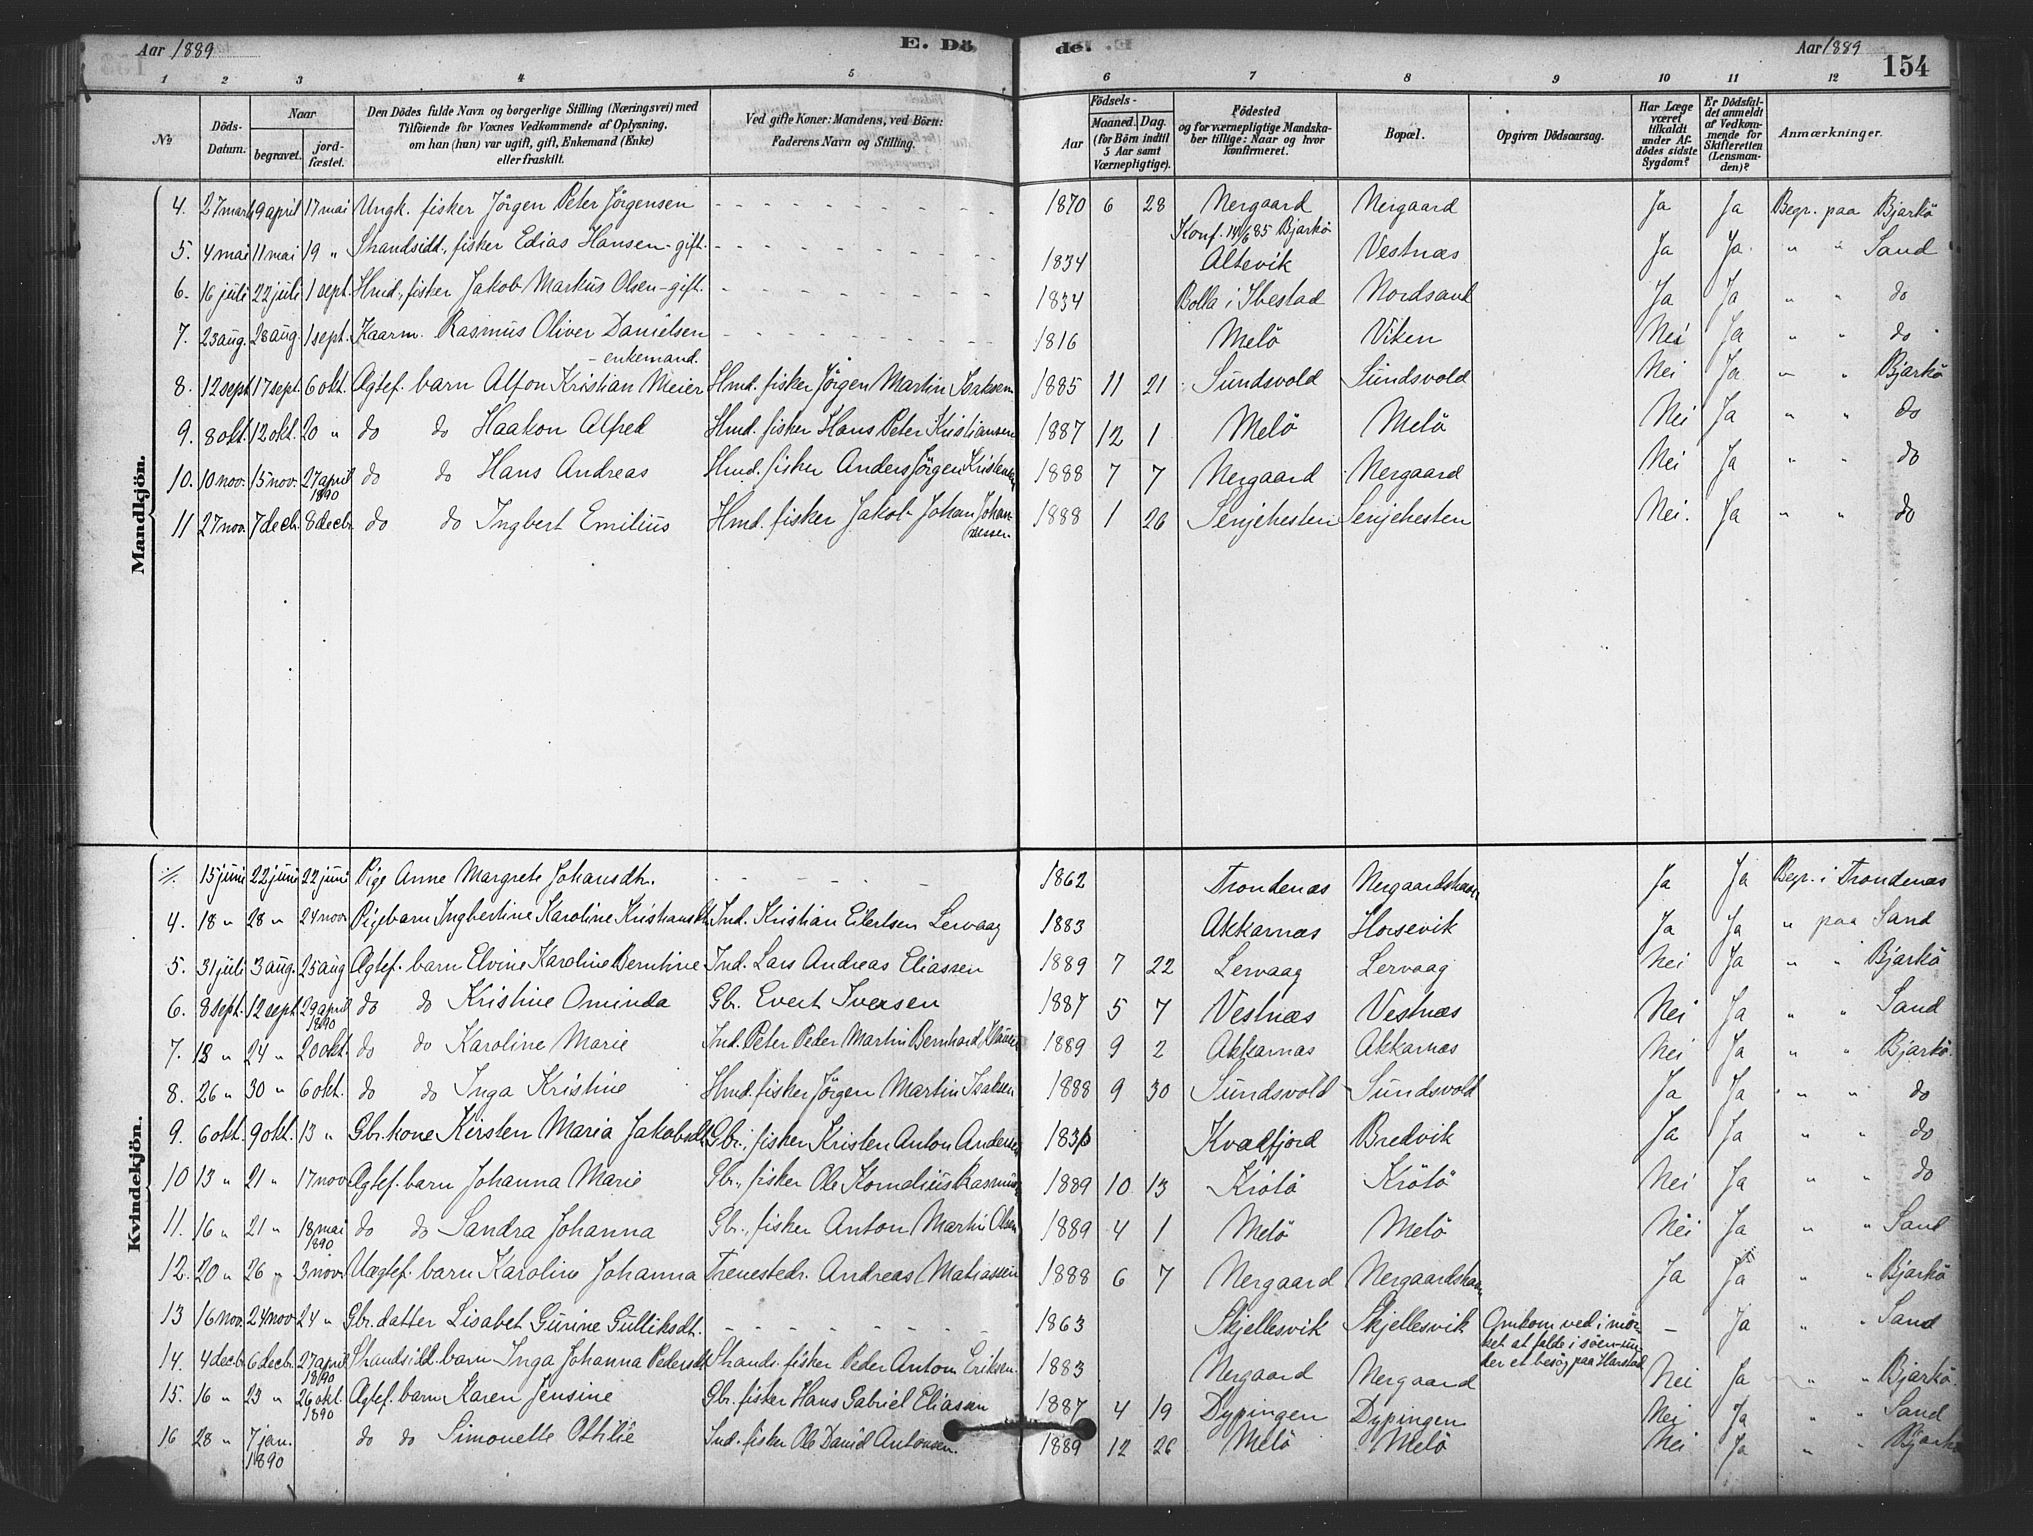 Aar 1889 E. Dö de. Aar 1889 154
1 2 3 4 5 6 7 8 9 10 11 12
№ Döds-Datum. Naar begravet. jordfæstet. Den Dödes fulde Navn og borgerlige Stilling (Næringsvei) med Tilföiende for Voxnes Vedkommende af Oplysning, om han (hun) var ugift, gift, Enkemand (Enke) eller fraskilt. Ved gifte Koner: Mandens, ved Börn: Faderens Navn og Stilling. Födsels- Aar Maaned. Dag. (for Börn indtil 5 Aar samt Værnepligtige). Födested og for værnepligtige Mandskaber tillige: Naar og hvor konfirmeret. Bopæl. Opgiven Dödsaarsag. Har Læge været tilkaldt under Afdödes sidste Sygdom? Er Dödsfaldet anmeldt af Vedkommende for Skifteretten (Lensmanden)? Anmærkninger.
Mandkjön.
4. 27 marts 9 april 17 mai Ungk. fisker Jörgen Peter Jörgensen 1870 6 28 Nergaard Konf. 14/6 85 Bjarkö Nergaard Ja Ja Begr. paa Bjarkö
5. 4 mai 11 mai 19 " Strandsidd., fisker Edias Hansen - gift. 1834 Altevik Vestnæs Ja Ja " " Sand
6. 16 juli 22 juli 1 sept. Hmd., fisker Jakob Markus Olsen - gift. 1834 Bolla i Ibestad Nordsand Ja Ja " " do
7. 25 aug. 28 aug. 1 sept. Kaarm. Rasmus Oliver Danielsen - enkemand. 1816 Melö Viken Nei Ja " " do
8. 12 sept 17 sept. 6 okt. Ægtef. barn Alfon Kristian Meier Hmd. fisker Jörgen Martin Isaksen 1885 11 21 Sundsvold Sundsvold Nei Ja " " Bjarkö
9. 8 okt. 12 okt. 20 " do do Haakon Alfred Hmd. fisker Hans Peter Kristiansen 1887 12 1 Melö Melö Nei Ja " " do
10. 10 nov. 15 nov. 27 april 1890 do do Hans Andreas Hmd. fisker Anders Jörgen Kristensen 1888 7 7 Nergaard Nergaard Nei Ja " " do
11 27 nov. 7 decb. 8 decb. do do Ingbert Emilius Hmd. fisker Jakob Johan Johannessen 1888 1 26 Senjehesten Senjehesten Nei. Ja " " do
Kvindekjön.
./. 15 juni 22 juni 22 juni Pige Anne Margrete Johansdtr. 1862 Trondenæs Nergaardshavn Ja Ja Begr. i Trondenæs
4. 18 " 28 " 24 nov. Pigebarn Ingbertine Karoline Kristiansdtr Ind. Kristian Eilertsen Lervaag 1883 Akkarnæs Horsevik Ja Ja " paa Sand
5. 31 juli 3 aug. 25 aug Ægtef. barn Elvine Karoline Berntine Ind. Lars Andreas Eliassen 1889 7 22 Lervaag Lervaag Nei Ja " " Bjarkö
6. 8 sept. 12 sept 29 april 1890 do do Kristine Ominda Gbr. Evert Iversen 1887 5 7 Vestnæs Vestnæs Nei Ja " " Sand
7. 18 " 24 " 20 okt. do do Karoline Marie Ind. Peter Peder Martin Bernhard 1889 9 2 Akkarnæs Akkarnæs Nei Ja " " Bjarkö.
8. 26 " 30 " 6 okt. do do Inga Kristine Hmd. fisker Jörgen Martin Isaksen 1888 9 30 Sundsvold Sundsvold Ja Ja " " do
9. 6 okt. 9 okt. 13 " Gbr. kone Kirsten Maria Jakobsdtr Gbr., fisker Kristen Anton Andersen Kvæfjord Bredvik Ja Ja " " do
10 13 " 21 " 17 nov Ægtef. barn Johanna Marie Gbr., fisker Ole Kornelius Rasmussen 1889 10 13 Krötö Krötö Nei Ja " " do
11. 16 " 21 " 18 mai 1890 do do Sandra Johanna Gbr., fisker Anton Martin Olsen 1889 4 1 Melö Melö Nei Ja " " Sand
12. 20 " 26 " 3 nov. Uægtef. barn Karoline Johanna Tjenestedr. Andreas Matiassen 1888 6 7 Nergaard Nergaardshavn Ja Ja " " Bjarkö
13 16 nov. 24 nov 24 " Gbr. datter Lisabet Gurine Gulliksdt. 1863 Skjellesvik Skjellesvik Omkom ved i mörket at falde i söen under et besög paa Harstad - Ja " " Sand
14. 4 decb. 6 decb. 27 april 1890 Strandsidd. barn Inga Johanna Pedersdt Strands. fisker Peder Anton Eriksen. 1883 Nergaard Nergaard Nei Ja " " Bjarkö.
15. 16 " 23 " 26 okt. 1890 Ægtef. barn Karen Jensine Gbr. fisker Hans Gabriel Eliasen 1887 4 19 Dypingen Dypingen Nei Ja " " Sand
16 28 " 7 jan. 1890 do do Simonette Othilie Ind. fisker Ole David Antonsen. 1889 12 26 Melö Melö Nei Ja " " Bjarkö